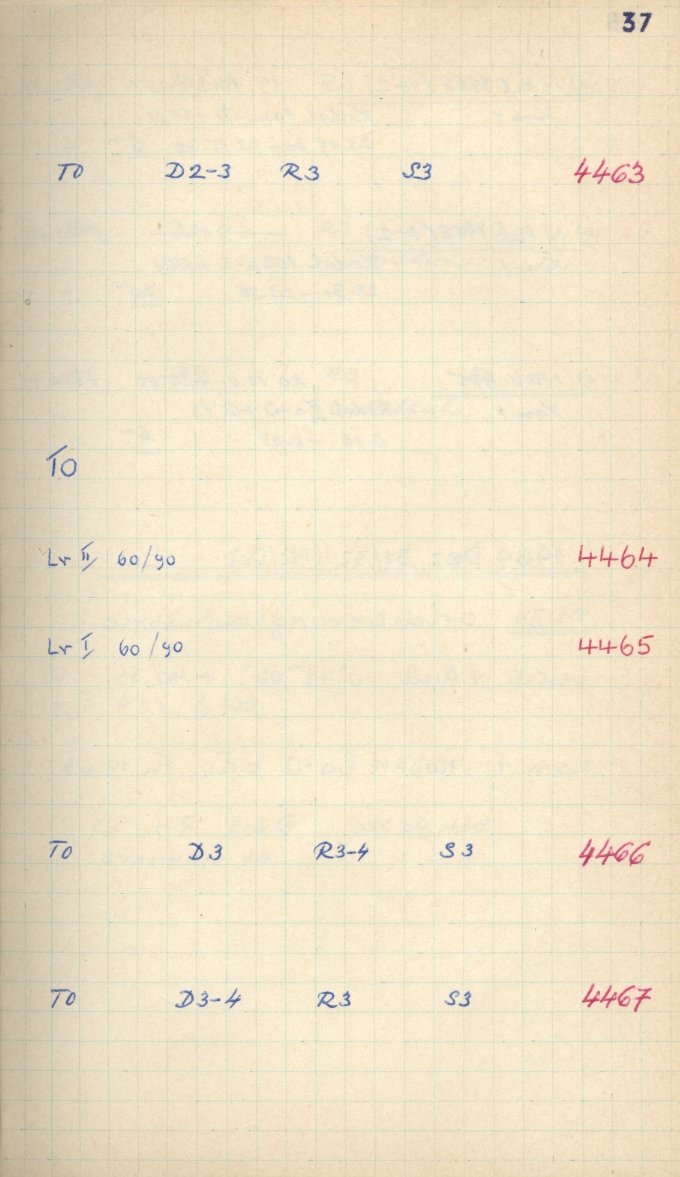 37
TO D2-3 R3 S3 4463
TO
Lr II 60/90 4464
Lr I 60/90 4465
TO D3 R3-4 S3 4466
TO D3-4 R3 S3 4467